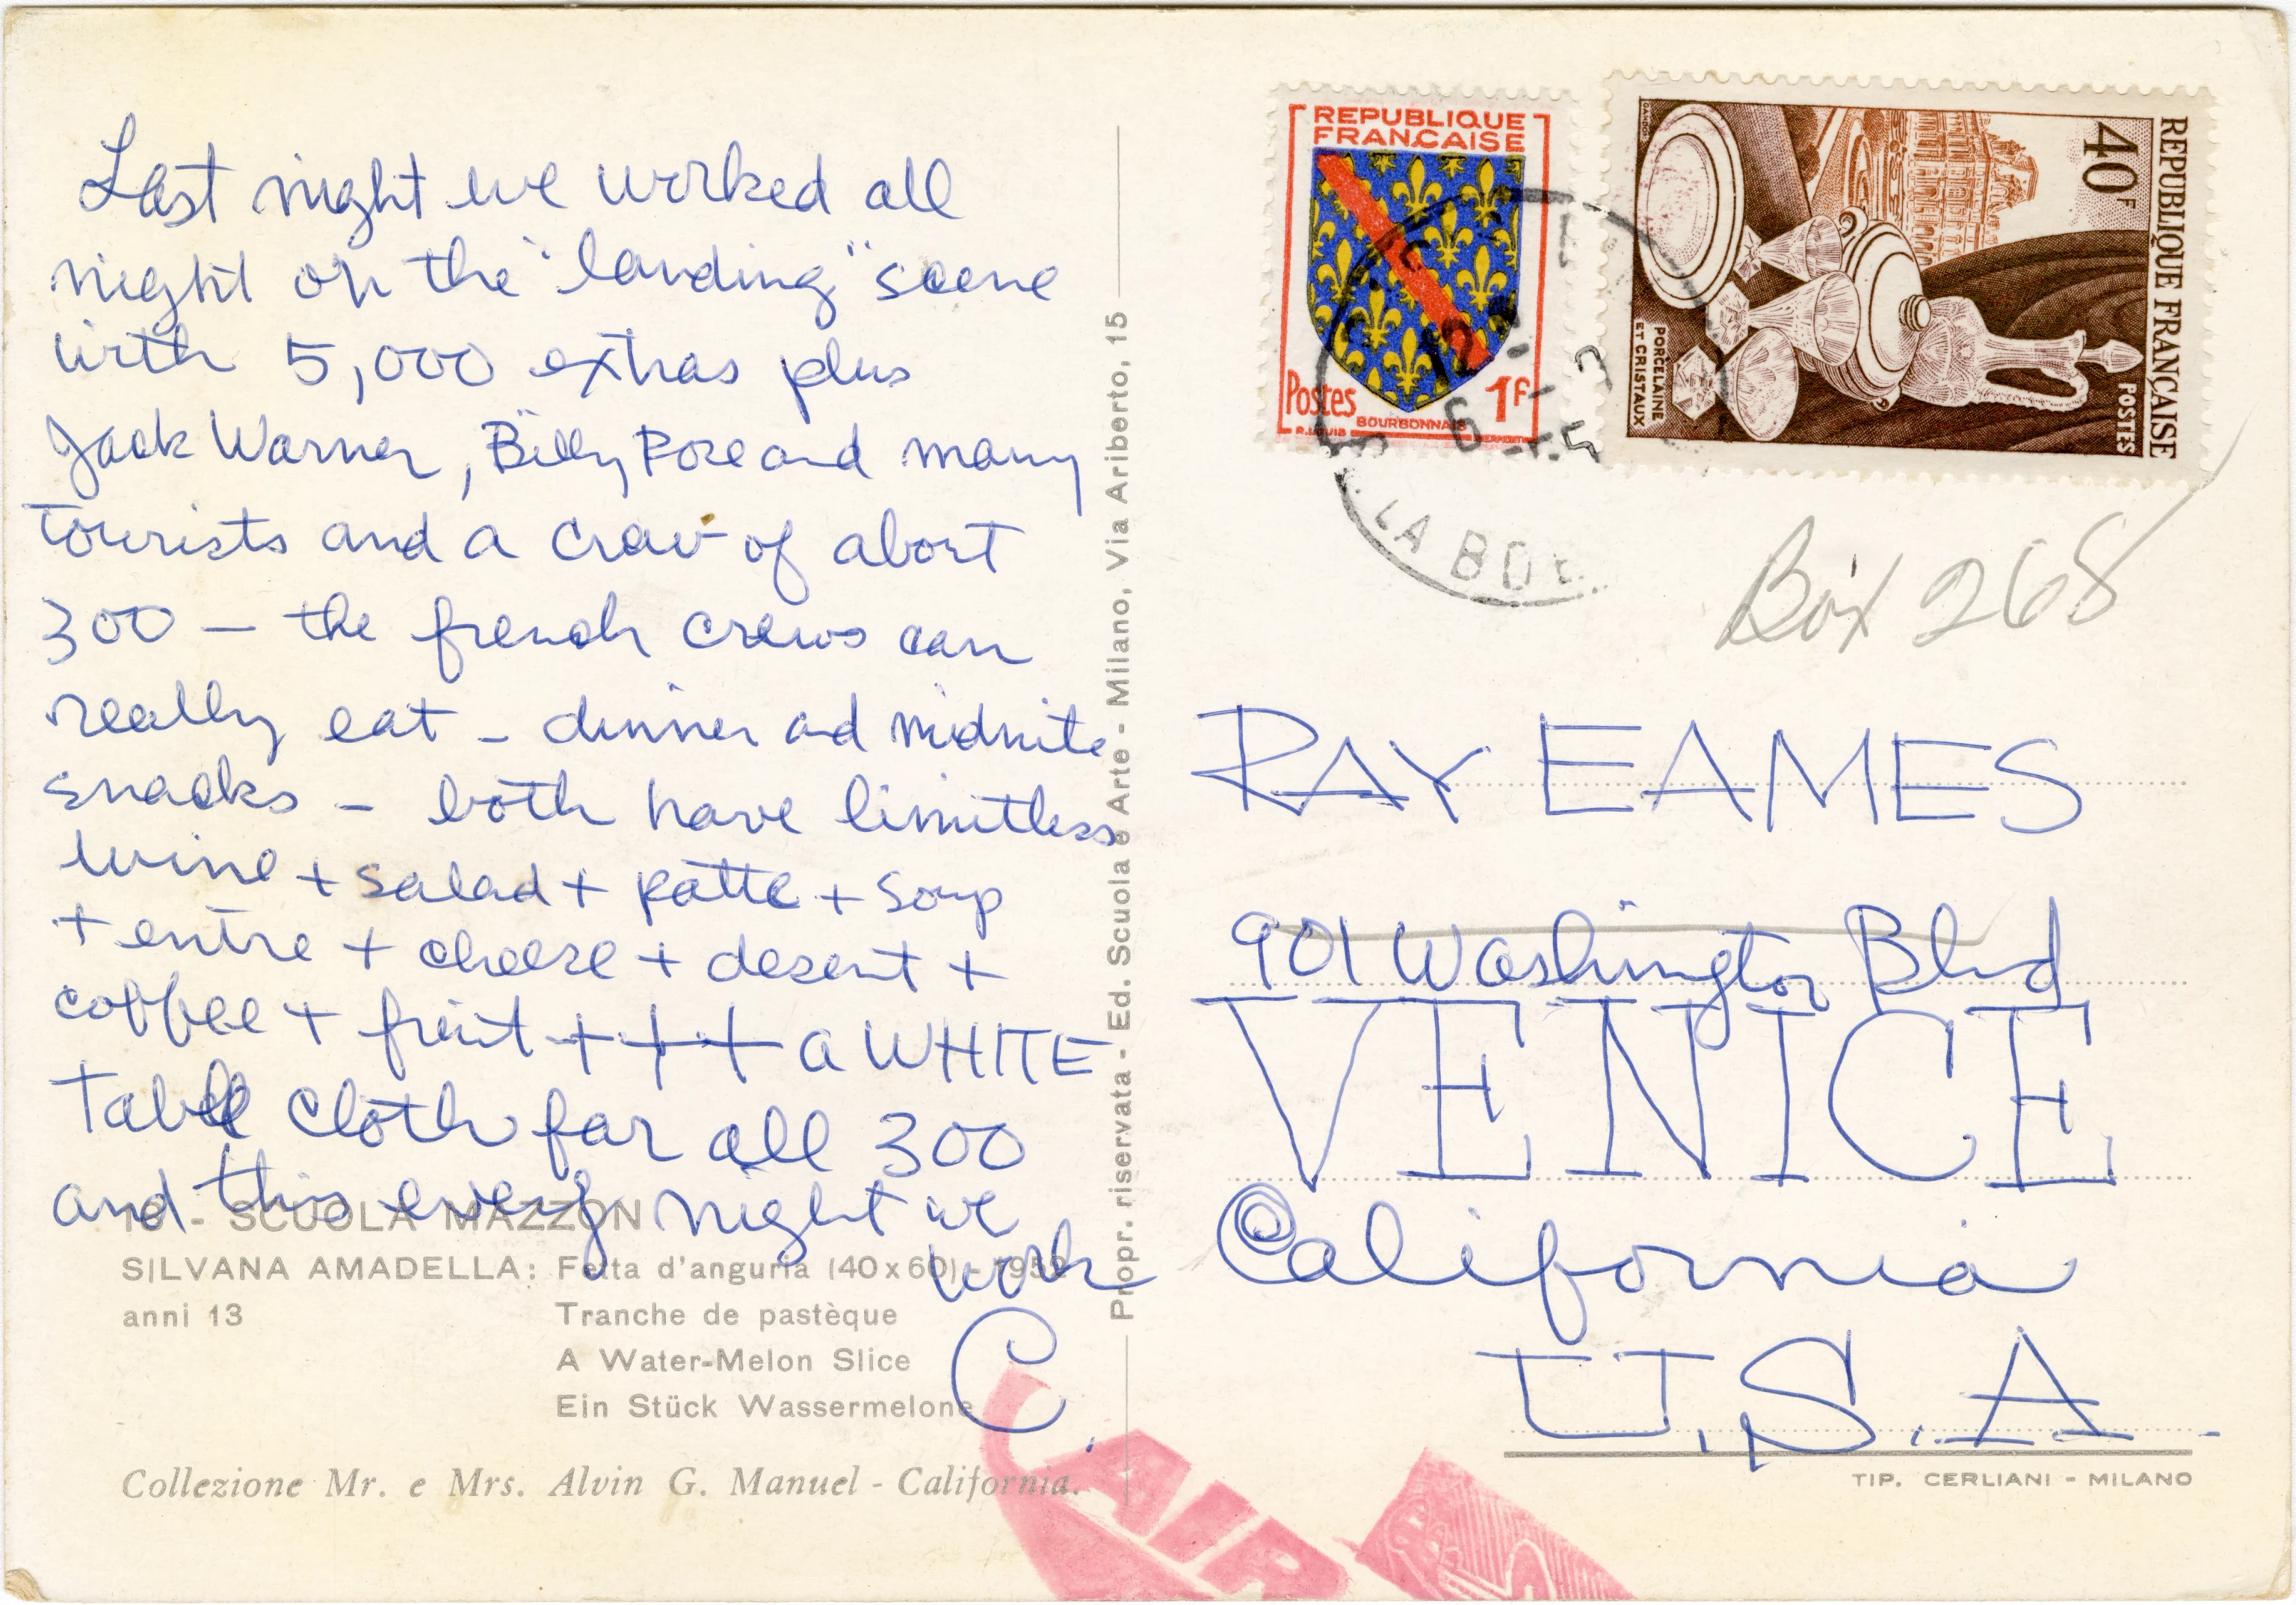 Last night we worked all
night on the "landing" scene
with 5,000 extras plus
Jack Warner, Billy Rose and many
tourists and a crew of about
300 — the french crews can
really eat – dinner and midnite
snacks – both have limitless
wine + salad + patte + soup
+ entre + cheese + desert +
coffee + fruit + + + a WHITE
Table cloth for all 300
and this every night we
work
C.
16 - SCUOLA MAZZON
SILVANA AMADELLA: Fetta d'anguria (40x60) - 1952
anni 13
Tranche de pastèque
A Water-Melon Slice
Ein Stück Wassermelone
Collezione Mr. e Mrs. Alvin G. Manuel - California.
Propr. riservata - Ed. Scuola e Arte - Milano, Via Ariberto, 15
REPUBLIQUE
FRANÇAISE
Postes 1F
BOURBONNAIS
REPUBLIQUE FRANÇAISE
40F
POSTES
PORCELAINE
ET CRISTAUX
GANDON
12
6
LA BOE
Box 268
RAY EAMES
901 Washington Blvd
VENICE
California
U.S.A.
TIP. CERLIANI - MILANO
AIR